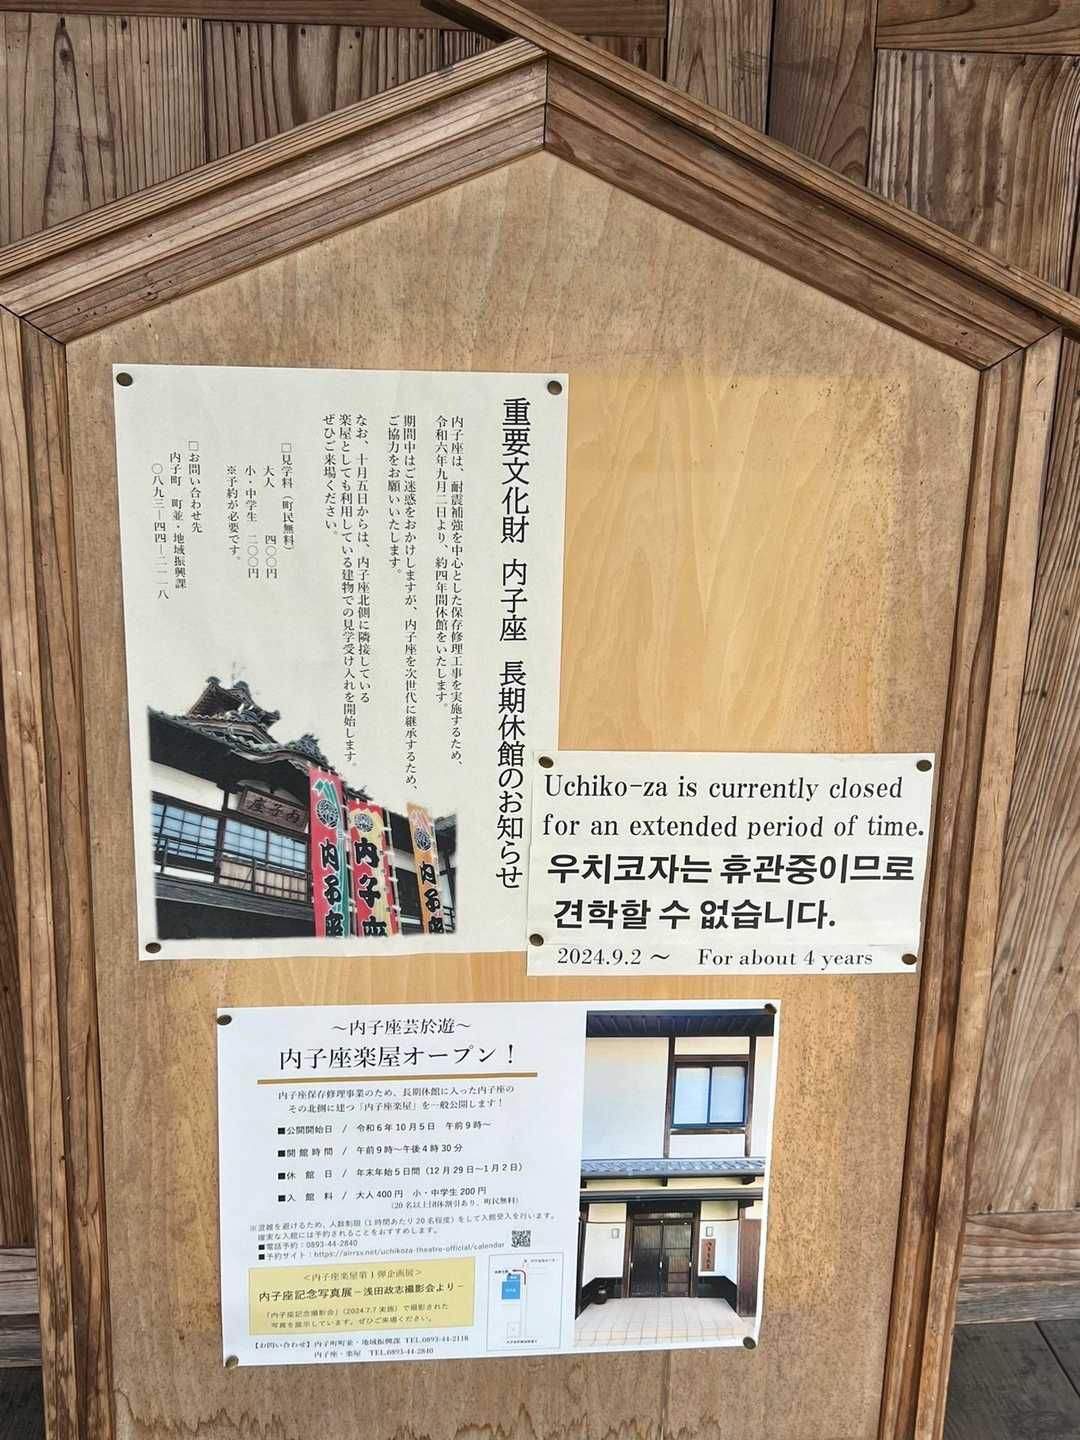 重要文化財 内子座 長期休館のお知らせ
内子座は、耐震補強を中心とした保存修理工事を実施するため、
令和六年九月二日より、約四年間休館をいたします。
期間中はご迷惑をおかけしますが、内子座を次世代に継承するため、
ご協力をお願いいたします。
なお、十月五日からは、内子座北側に隣接している
楽屋としても利用している建物での見学受け入れを開始します。
ぜひご来場ください。
□見学料（町民無料）
大人 四〇〇円
小・中学生 二〇〇円
※予約が必要です。
□お問い合わせ先
内子町 町並・地域振興課
〇八九三ー四四ー二一一八
内子座
内子座
内子座
内子座
Uchiko-za is currently closed
for an extended period of time.
우치코자는 휴관중이므로
견학할 수 없습니다.
2024.9.2 ～ For about 4 years
～内子座芸於遊～
内子座楽屋オープン！
内子座保存修理事業のため、長期休館に入った内子座の
その北側に建つ「内子座楽屋」を一般公開します！
■公開開始日 / 令和6年10月5日 午前9時～
■開館時間 / 午前9時～午後4時30分
■休館日 / 年末年始5日間（12月29日～1月2日）
■入館料 / 大人400円 小・中学生200円
（20名以上団体割引あり、町民無料）
※混雑を避けるため、人数制限（1時間あたり20名程度）をして入館受入を行います。
確実な入館には予約されることをおすすめします。
■電話予約：0893-44-2840
■予約サイト：https://airrsv.net/uchikoza-theatre-official/calendar
＜内子座楽屋第1弾企画展＞
内子座記念写真展－浅田政志撮影会より－
「内子座記念撮影会」（2024.7.7実施）で撮影された
写真を展示しています。ぜひご来場ください。
【お問い合わせ】内子町町並・地域振興課 TEL.0893-44-2118
内子座・楽屋 TEL.0893-44-2840